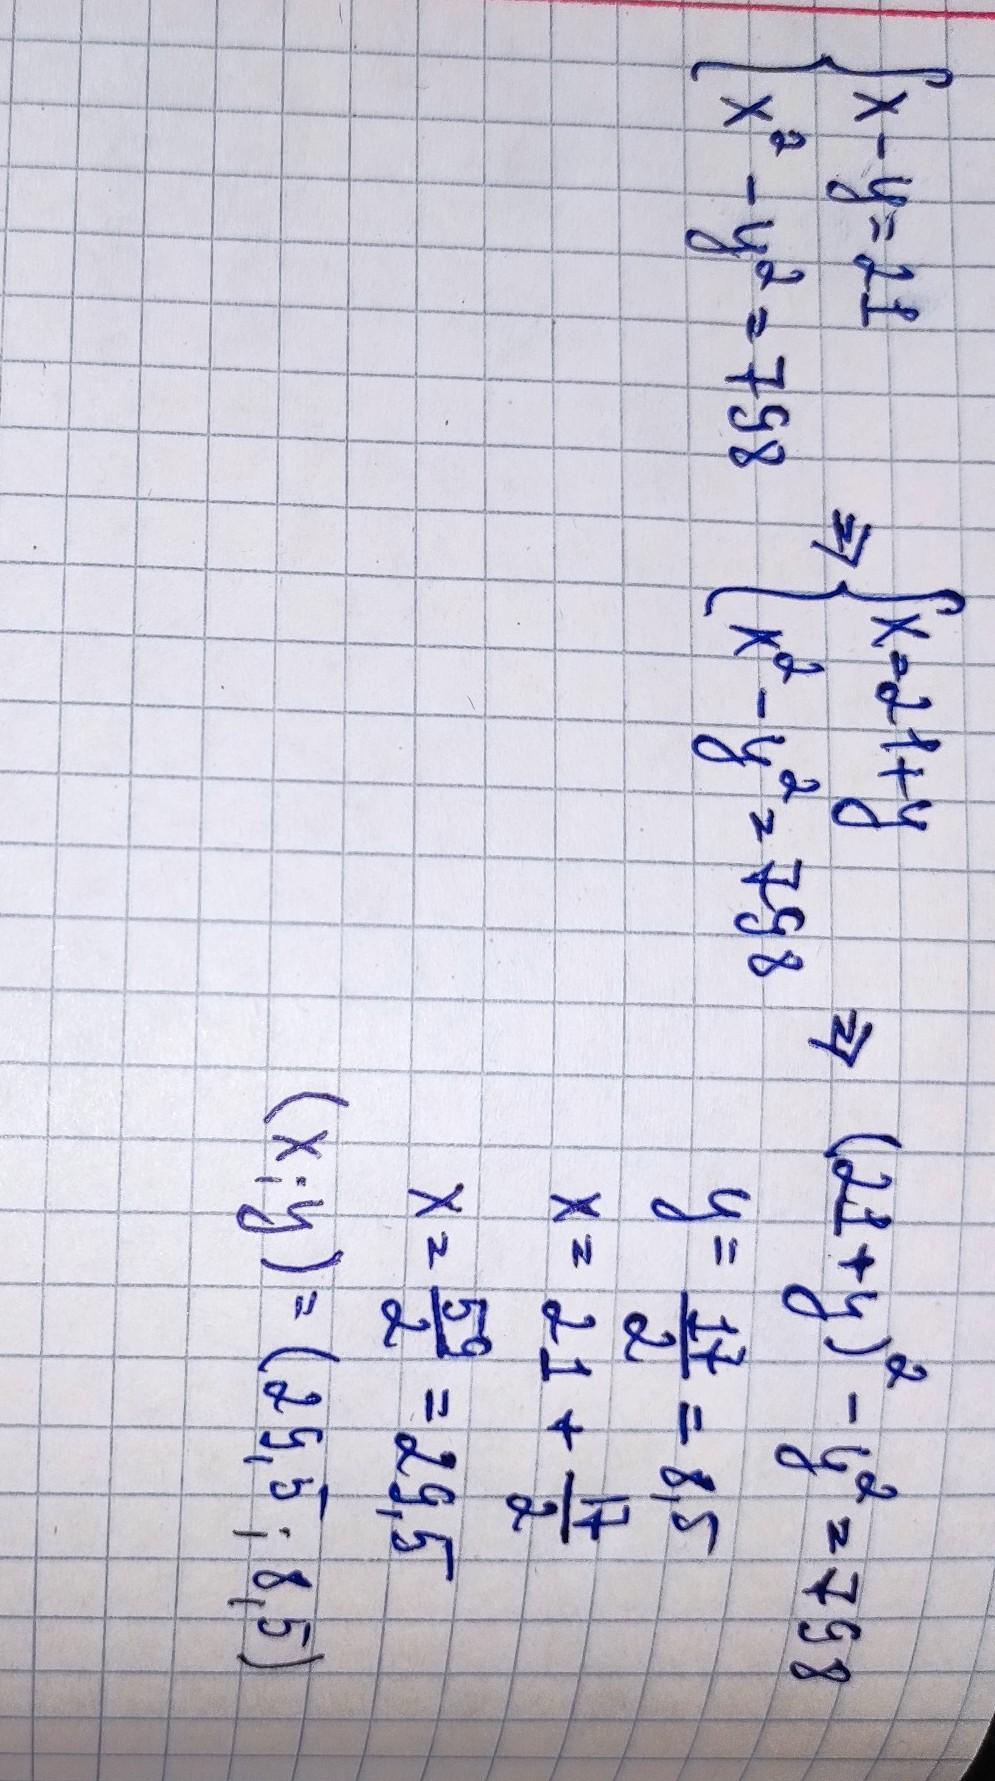 { x - y = 21
x² - y² = 798
⇒ { x = 21 + y
x² - y² = 798
⇒ (21 + y)² - y² = 798
y = 17/2 = 8,5
x = 21 + 17/2
x = 59/2 = 29,5
(x; y) = (29,5 ; 8,5)